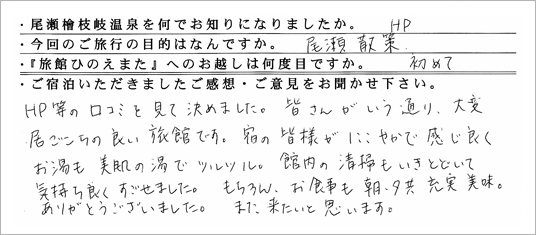 ・尾瀬檜枝岐温泉を何でお知りになりましたか。 HP
・今回のご旅行の目的はなんですか。 尾瀬散策.
・『旅館ひのえまた』へのお越しは何度目ですか。 初めて
・ご宿泊いただきましたご感想・ご意見をお聞かせ下さい。
HP等の口コミを見て決めました。皆さんがいう通り、大変
居ごこちの良い旅館です。宿の皆様がにこやかで感じ良く
お湯も美肌の湯でツルツル。館内の清掃もいきとどいて
気持ち良くすごせました。もちろん、お食事も朝・夕共充実美味。
ありがとうございました。また来たいと思います。